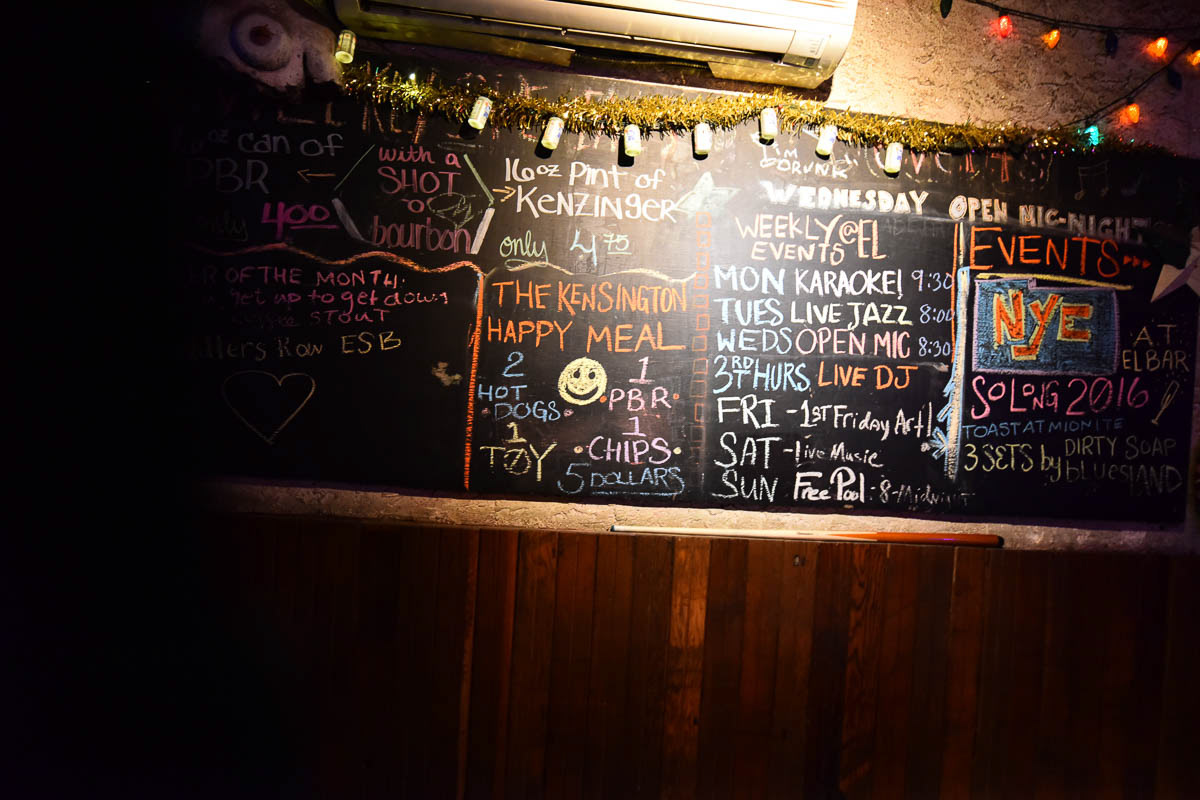 oz can of
PBR
only 400
with a
SHOT
o
bourbon
16oz Pint of
KENZINGER
only 4 75
OF THE MONTH:
get up to get down
STOUT
Kow ESB
THE KENSINGTON
HAPPY MEAL
2
HOT
DOGS
1
PBR
1
TOY
1
CHIPS
5 DOLLARS
"I'M
DRUNK"
WEDNESDAY OPEN MIC-NIGHT
WEEKLY @ EL
EVENTS
MON KARAOKE! 9:30
TUES LIVE JAZZ 8:00
WEDS OPEN MIC 8:30
3RD THURS LIVE DJ
FRI - 1ST Friday Art!
SAT - live Music
SUN Free Pool: 8-Midnight
EVENTS...
NYE
AT
EL BAR
SO LONG 2016
TOAST AT MIDNITE
3 SETS by DIRTY SOAP
bluesLAND